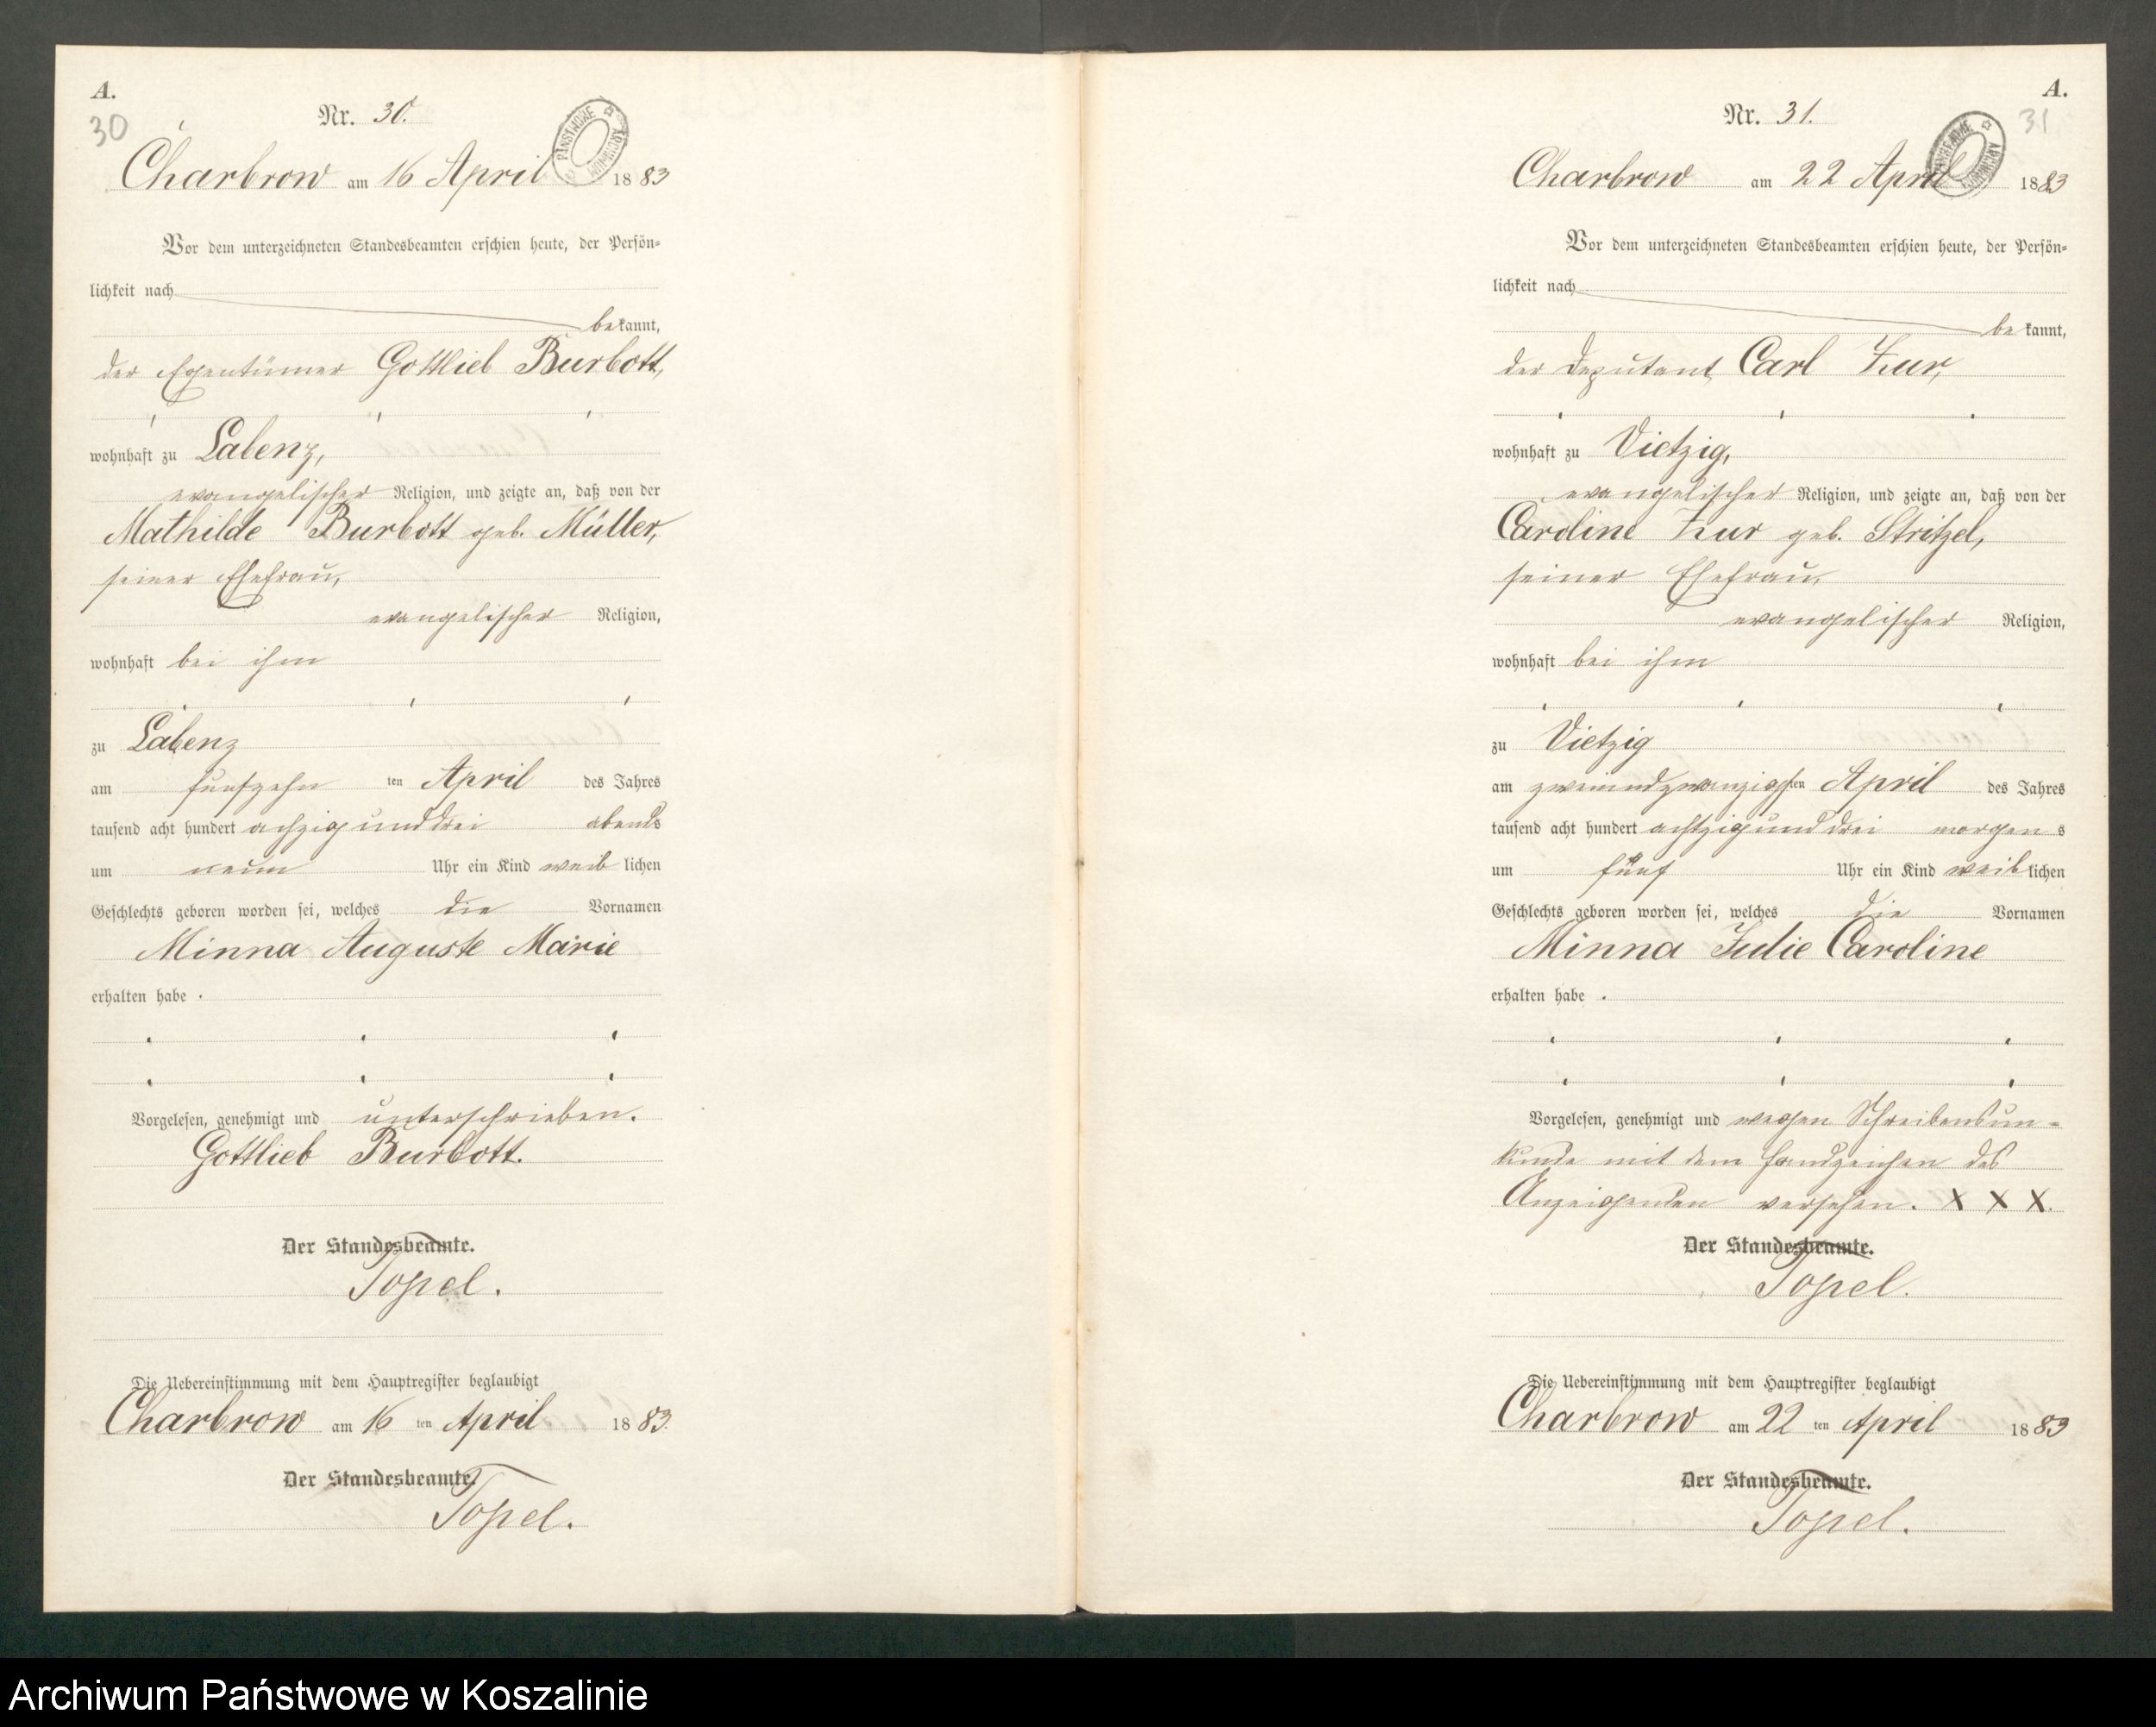 A.
30
Nr. 30.
Charbrow am 16 April 1883
Vor dem unterzeichneten Standesbeamten erschien heute, der Persön-
lichkeit nach
bekannt,
der Eigentümer Gottlieb Burbott,
wohnhaft zu Labenz,
evangelischer Religion, und zeigte an, daß von der
Mathilde Burbott geb. Müller,
seiner Ehefrau,
evangelischer Religion,
wohnhaft bei ihm
zu Labenz
am funfzehn ten April des Jahres
tausend acht hundert achzig und drei abends
um neun Uhr ein Kind weiblichen
Geschlechts geboren worden sei, welches die Vornamen
Minna Auguste Marie
erhalten habe.
Vorgelesen, genehmigt und unterschrieben.
Gottlieb Burbott.
Der Standesbeamte.
Topel.
Die Uebereinstimmung mit dem Hauptregister beglaubigt
Charbrow am 16 ten April 1883.
Der Standesbeamte.
Topel.
A.
31
Nr. 31.
Charbrow am 22 April 1883
Vor dem unterzeichneten Standesbeamten erschien heute, der Persön-
lichkeit nach
bekannt,
der Deputant Carl Zur,
wohnhaft zu Vietzig,
evangelischer Religion, und zeigte an, daß von der
Caroline Zur geb. Stritzel,
seiner Ehefrau,
evangelischer Religion,
wohnhaft bei ihm
zu Vietzig
am zweiundzwanzigsten April des Jahres
tausend acht hundert achtzig und drei morgens
um fünf Uhr ein Kind weiblichen
Geschlechts geboren worden sei, welches die Vornamen
Minna Julie Caroline
erhalten habe.
Vorgelesen, genehmigt und wegen Schreibensun-
kunde mit dem Handzeichen des
Anzeigenden versehen. X X X.
Der Standesbeamte.
Topel.
Die Uebereinstimmung mit dem Hauptregister beglaubigt
Charbrow am 22 ten April 1883
Der Standesbeamte.
Topel.
Archiwum Państwowe w Koszalinie